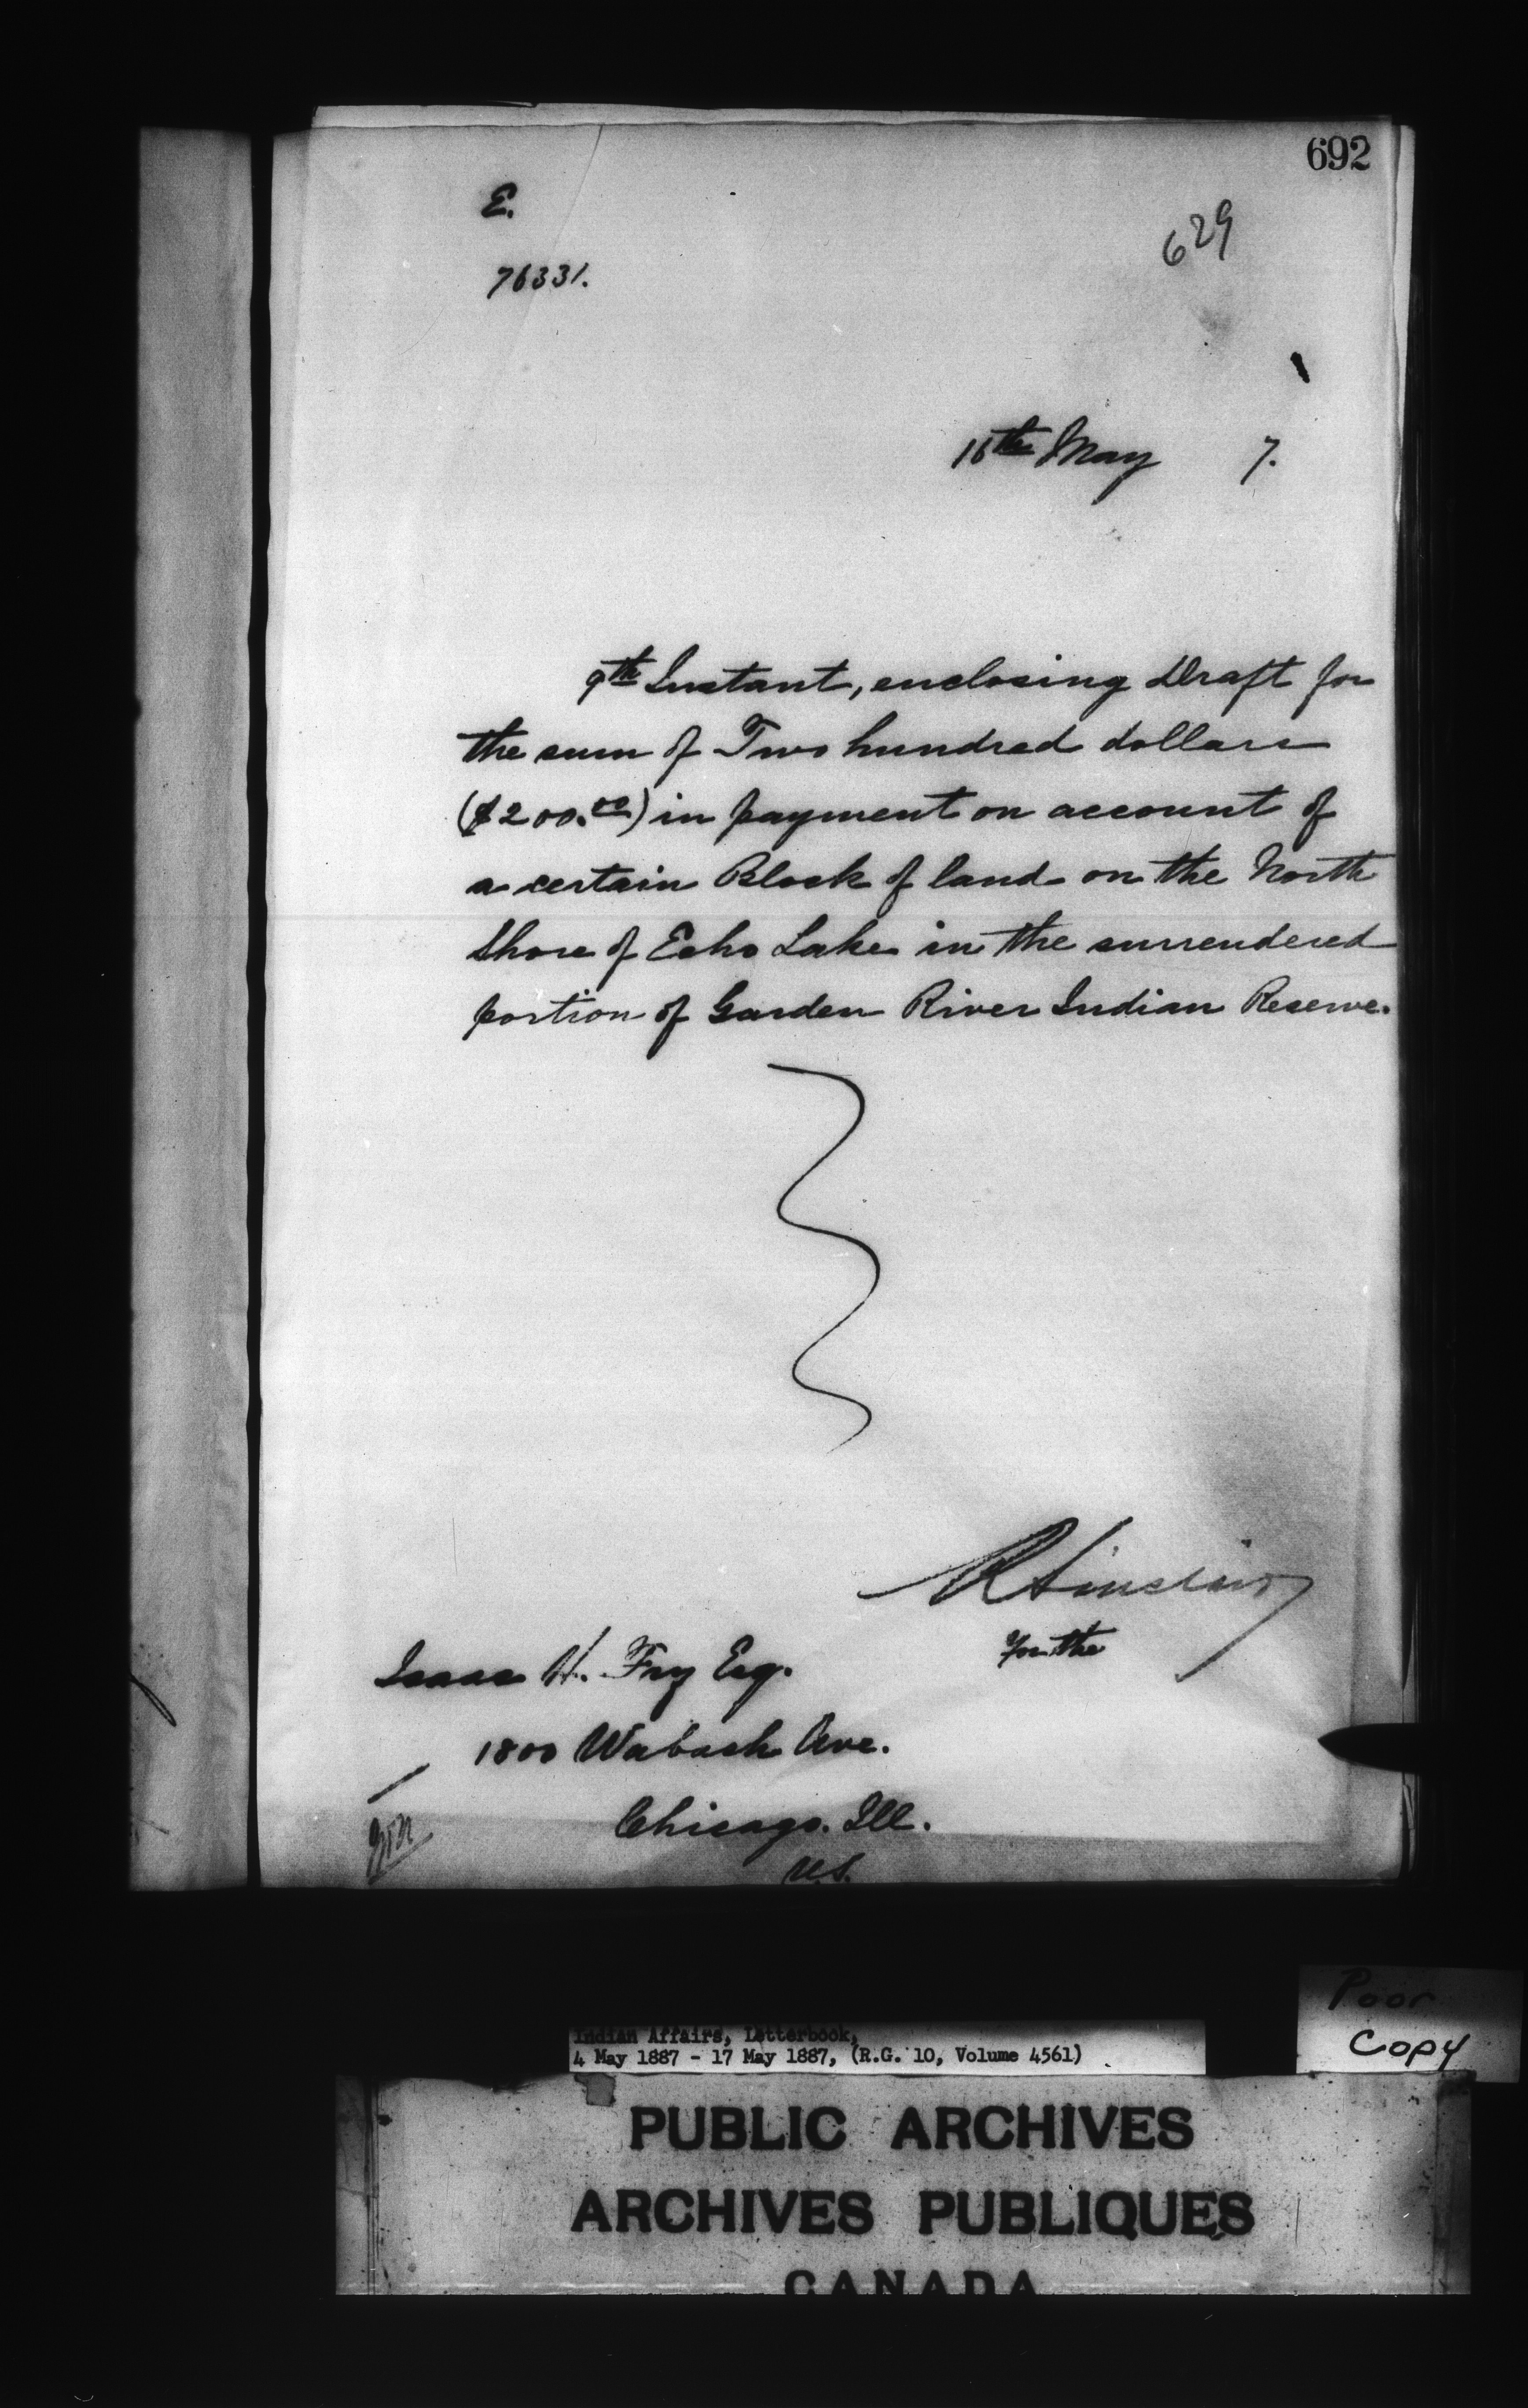 692
E.
629
76331.
16th May 7.
9th Instant, enclosing Draft for
the sum of Two hundred dollars
($200.00) in payment on account of
a certain Block of land on the North
Shore of Echo Lake in the surrendered
portion of Garden River Indian Reserve.
R Sinclair
For the
Isaac H. Fry Esq.
1800 Wabash Ave.
Chicago. Ill.
U.S.
Poor
Copy
Indian Affairs, Letterbook,
4 May 1887 - 17 May 1887, (R.G. 10, Volume 4561)
PUBLIC ARCHIVES
ARCHIVES PUBLIQUES
CANADA